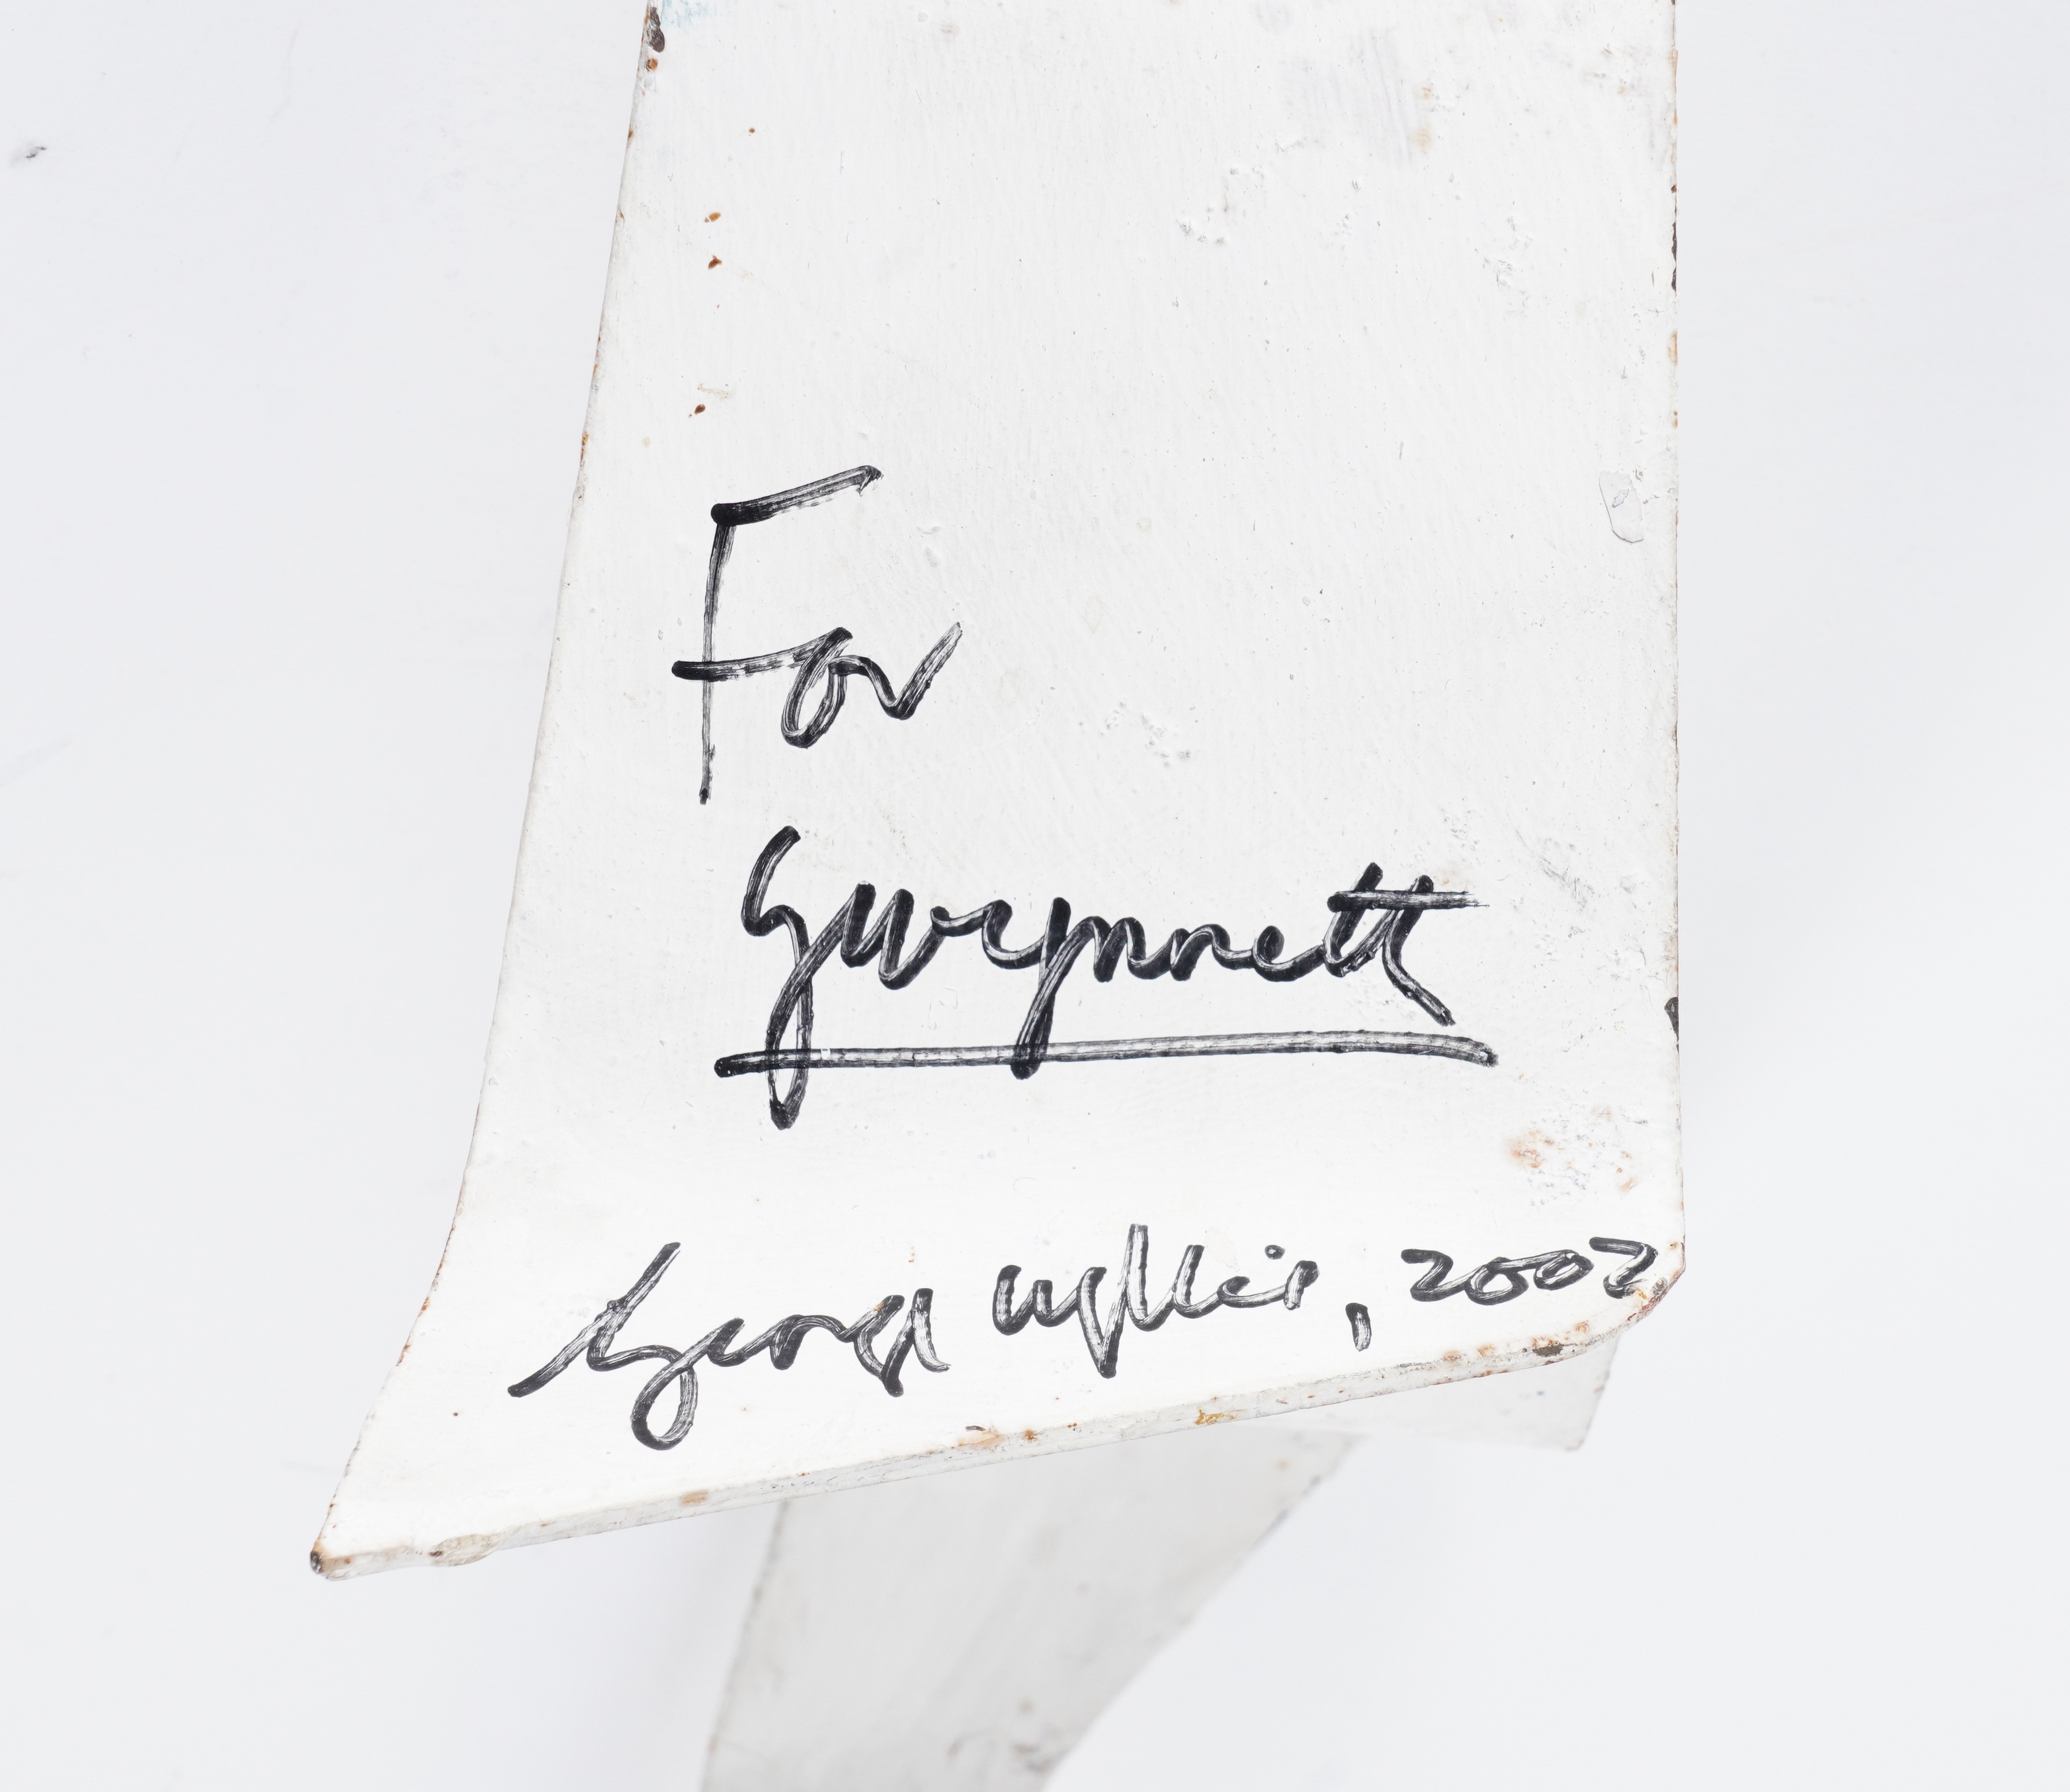 For
Gwynnett
George Wyllie, 2002